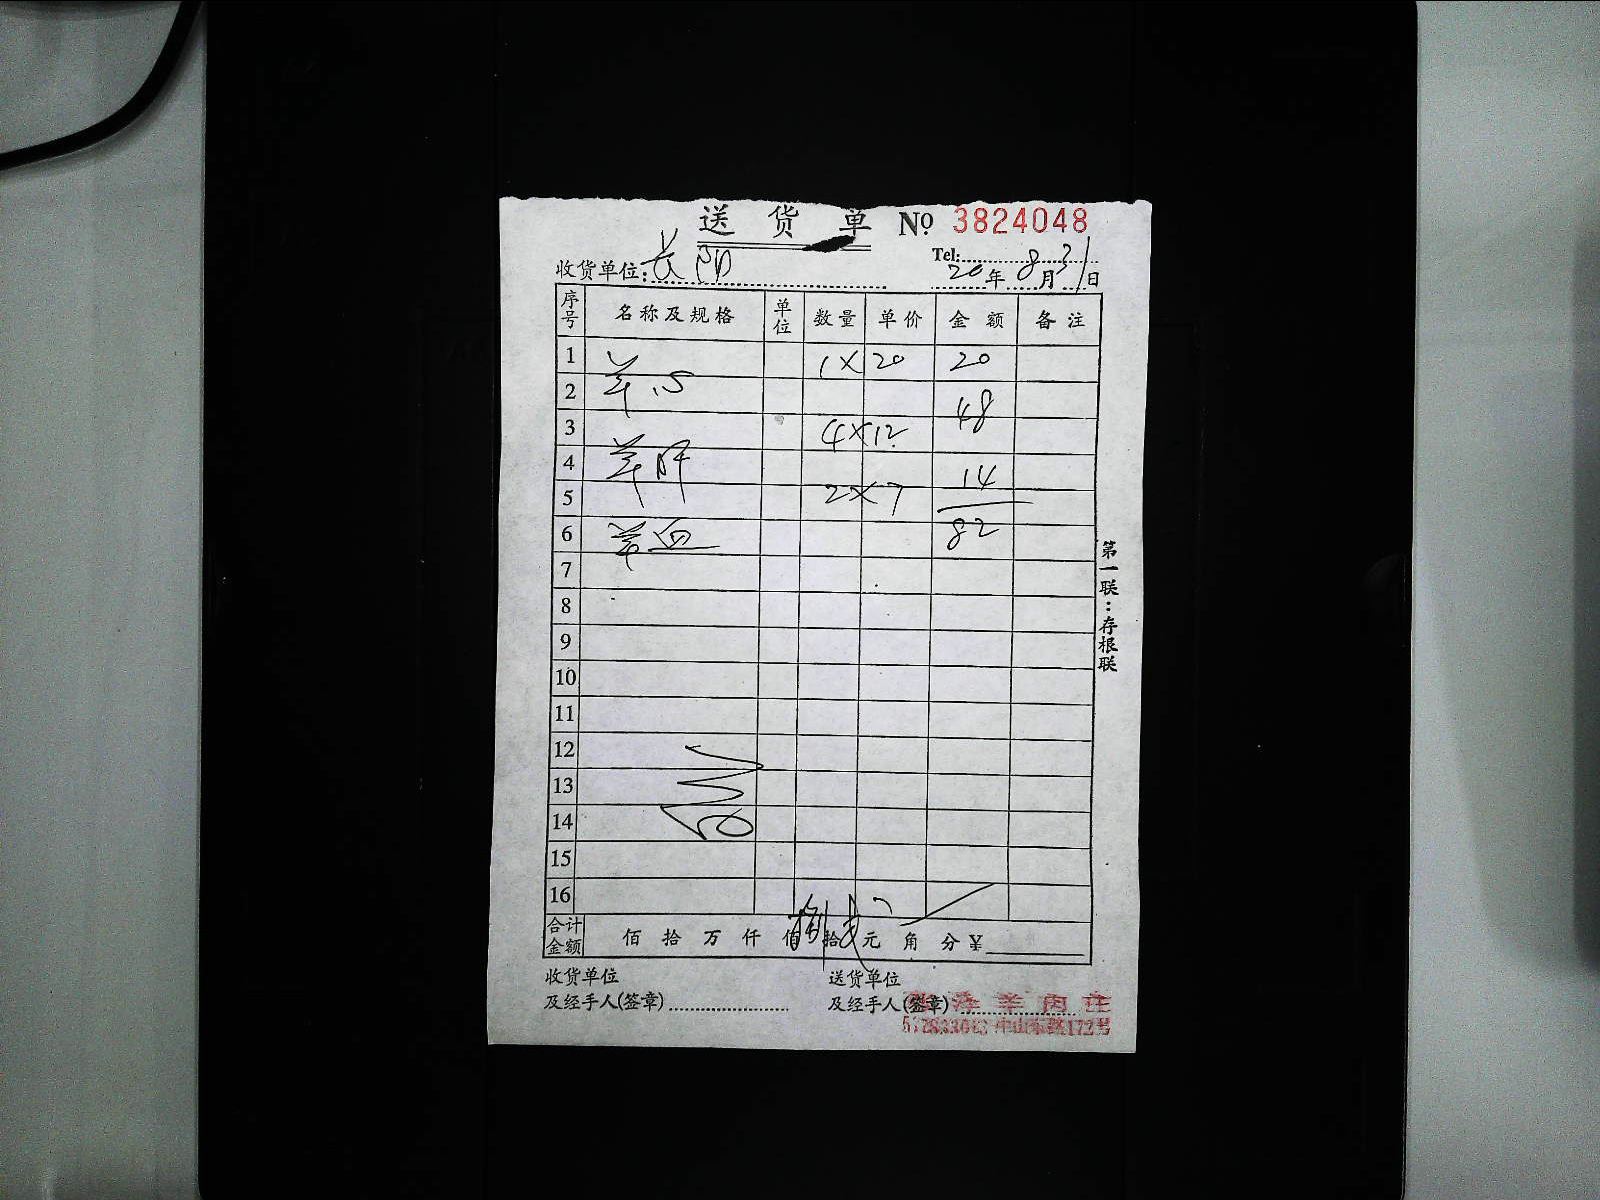 送 货 单 № 3824048
Tel:
收货单位: 长阳 20年 8月31日
序号 名称及规格 单位 数量 单价 金额 备注
1 羊心 1×20 20
2 48
3 羊肝 4×12
4 14
5 2×7
6 羊血 82
7
8
9
10
11
12
13
14
15
16
合计金额 佰 拾 万 仟 佰 捌拾贰元 角 分 ¥
第一联：存根联
收货单位 送货单位
及经手人(签章) 及经手人(签章)
羊肉庄
中山东路172号